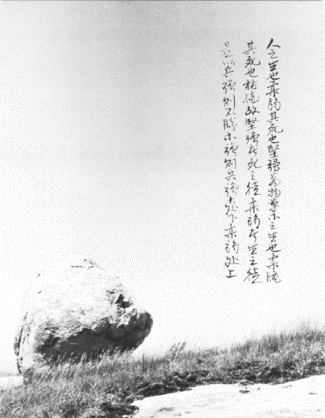 人之生也柔弱其死也堅強萬物草木之生也柔脆
其死也枯槁故堅強者死之徒柔弱者生之徒
是以兵強則不勝木強則共強大处下柔弱处上